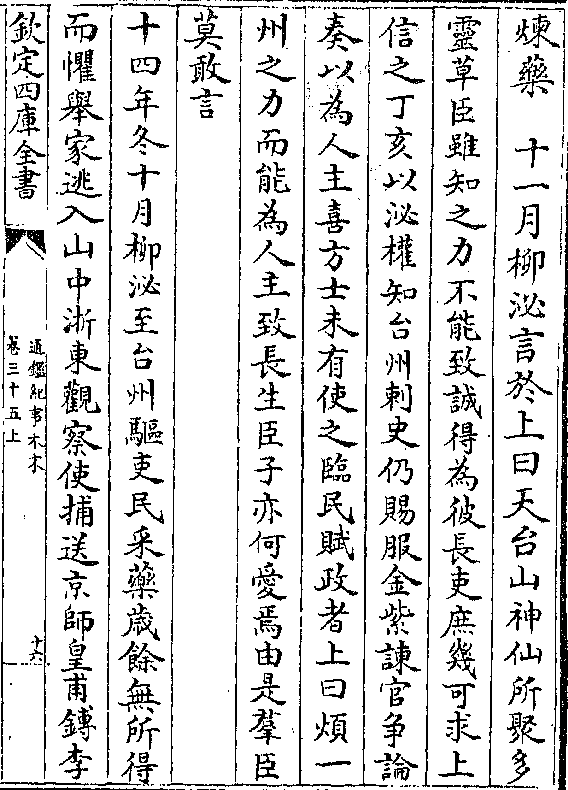 煉藥　十一月柳泌言於上曰天台山神仙所聚多
靈草臣雖知之力不能致誠得為彼長吏庶幾可求上
信之丁亥以泌權知台州刺史仍賜服金紫諫官争論
奏以為人主喜方士未有使之臨民賦政者上曰煩一
州之力而能為人主致長生臣子亦何愛焉由是羣臣
莫敢言
十四年冬十月柳泌至台州驅吏民采藥歳餘無所得
而懼舉家逃入山中浙東觀察使捕送京師皇甫鎛李
欽定四庫全書
通鑑紀事本末
卷三十五上
十六